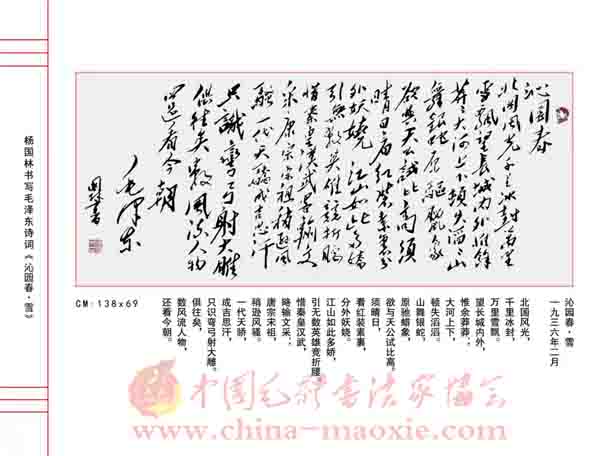 杨国林书写毛泽东诗词《沁园春·雪》
沁园春
北国风光千里冰封万里
雪飘望长城内外惟馀
莽莽大河上下顿失滔滔山
舞银蛇原驱蜡象
欲与天公试比高须
晴日看红装素裹分
外妖娆 江山如此多娇
引无数英雄竞折腰
惜秦皇汉武略输文
采唐宗宋祖稍逊风
骚一代天骄成吉思汗
只识弯弓射大雕
俱往矣数风流人物
还看今朝
毛泽东
国林书
CM:138x69
沁园春·雪
一九三六年二月
北国风光，
千里冰封，
万里雪飘。
望长城内外，
惟余莽莽；
大河上下，
顿失滔滔。
山舞银蛇，
原驰蜡象，
欲与天公试比高。
须晴日，
看红装素裹，
分外妖娆。
江山如此多娇，
引无数英雄竞折腰
惜秦皇汉武，
略输文采；
唐宗宋祖，
稍逊风骚。
一代天骄，
成吉思汗，
只识弯弓射大雕。
俱往矣，
数风流人物，
还看今朝。
中国毛体书法家协会
www.china-maoxie.com